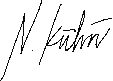 N. Kühn